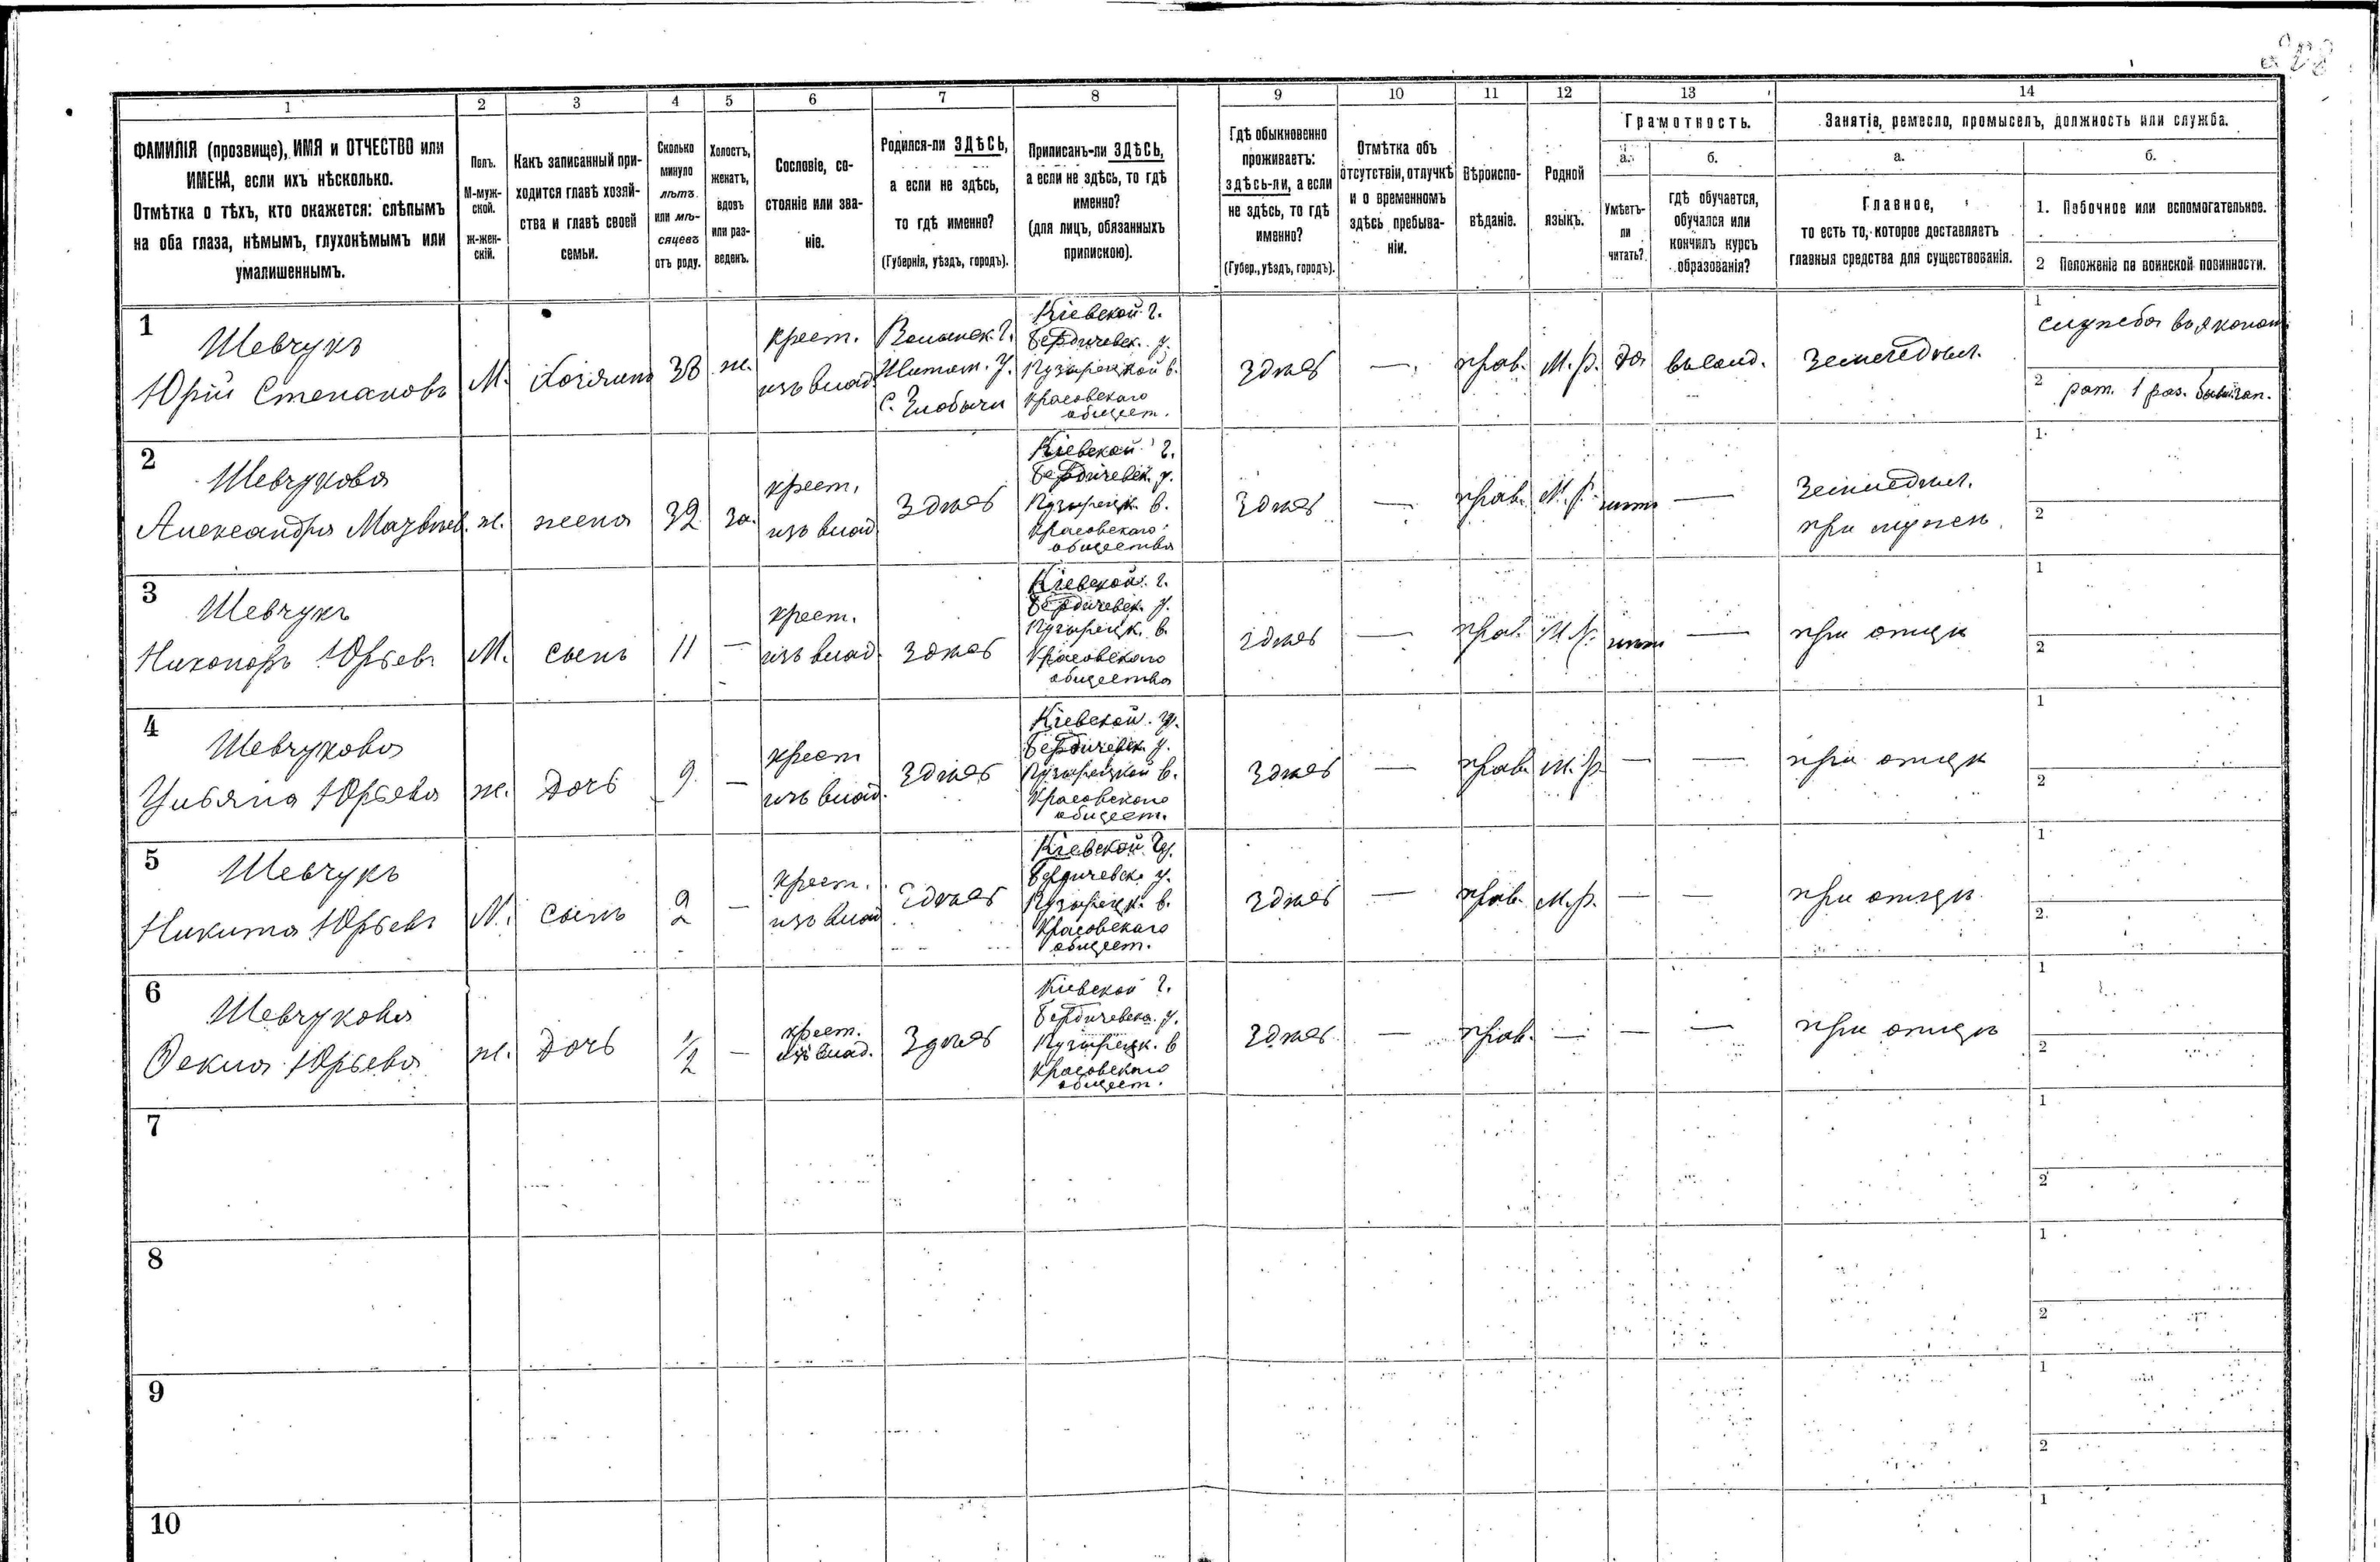 1 2 3 4 5 6 7 8 9 10 11 12 13 14
ФАМИЛІЯ (прозвище), ИМЯ и ОТЧЕСТВО или
ИМЕНА, если ихъ нѣсколько.
Отмѣтка о тѣхъ, кто окажется: слѣпымъ
на оба глаза, нѣмымъ, глухонѣмымъ или
умалишеннымъ.
Полъ.
М-муж-
ской.
ж-жен-
скій.
Какъ записанный при-
ходится главѣ хозяй-
ства и главѣ своей
семьи.
Сколько
минуло
лѣтъ
или мѣ-
сяцевъ
отъ роду.
Холостъ,
женатъ,
вдовъ
или раз-
веденъ.
Сословіе, со-
стояніе или зва-
ніе.
Родился-ли ЗДѢСЬ,
а если не здѣсь,
то гдѣ именно?
(Губернія, уѣздъ, городъ).
Приписанъ-ли ЗДѢСЬ,
а если не здѣсь, то гдѣ
именно?
(для лицъ, обязанныхъ
припискою).
Гдѣ обыкновенно
проживаетъ:
здѣсь-ли, а если
не здѣсь, то гдѣ
именно?
(Губер., уѣздъ, городъ).
Отмѣтка объ
отсутствіи, отлучкѣ
и о временномъ
здѣсь пребыва-
ніи.
Вѣроиспо-
вѣданіе.
Родной
языкъ.
Грамотность.
а.
Умѣетъ-
ли
читать?
б.
гдѣ обучается,
обучался или
кончилъ курсъ
образованія?
Занятіе, ремесло, промыселъ, должность или служба.
а.
Главное,
то есть то, которое доставляетъ
главныя средства для существованія.
б.
1. Побочное или вспомогательное.
2 Положеніе по воинской повинности.
1
Шевчукъ
Юрій Степановъ
М.
хозяинъ
38
ж.
крест.
изъ влад.
Волынск. г.
Житом. у.
с.
Кіевской г.
Бердичевск. у.
Пузырецкой в.
Красовскаго
общест.
здѣсь
—
прав.
М. р.
да
земледѣл.
1
служба
2
рат. 1 раз.
2
Шевчукова
Александра
ж.
жена
32
за.
крест.
изъ влад.
здѣсь
Кіевской г.
Бердичевск. у.
Пузырецк. в.
Красовскаго
общества
здѣсь
—
прав.
М. р.
нѣтъ
—
земледѣл.
при мужѣ
1
2
3
Шевчукъ
Никоноръ Юрьевъ
М.
сынъ
11
—
крест.
изъ влад.
здѣсь
Кіевской г.
Бердичевск. у.
Пузырецк. в.
Красовскаго
общества
здѣсь
—
прав.
М. р.
нѣтъ
—
при отцѣ
1
2
4
Шевчукова
Ульяна Юрьева
ж.
дочь
9
—
крест
изъ влад.
здѣсь
Кіевской г.
Бердичевск. у.
Пузырецкой в.
Красовского
общест.
здѣсь
—
прав.
М. р.
—
—
при отцѣ
1
2
5
Шевчукъ
Никита Юрьевъ
М.
сынъ
2
—
крест.
изъ влад
здѣсь
Кіевской г.
Бердичевск. у.
Пузырецк. в.
Красовскаго
общест.
здѣсь
—
прав.
М. р.
—
—
при отцѣ
1
2.
6
Шевчукова
Ѳекла Юрьева
ж.
дочь
1/2
—
крест.
изъ влад.
здѣсь
Кіевской г.
Бердичевск. у.
Пузырецк. в
Красовскаго
общест.
здѣсь
—
прав.
—
—
—
при отцѣ
1
2
7
1
2
8
1
2
9
1
2
10
1